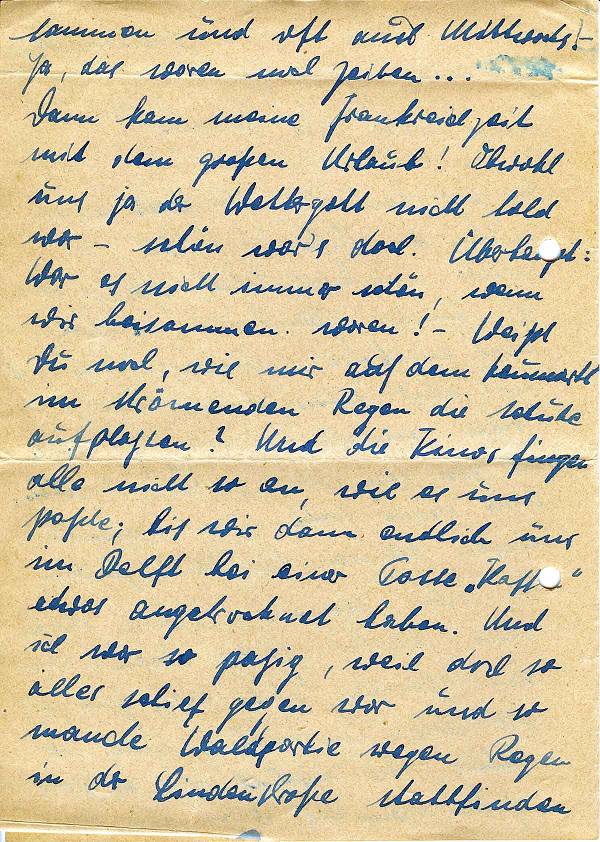 sammen und oft auch Mittwochs! –
Ja, das waren mal Zeiten...
Dann kam meine Frankreichzeit
mit dem großen Urlaub! Obwohl
uns ja der Wettergott nicht hold
war – schön war's doch. Überhaupt:
War es nicht immer schön, wenn
wir beisammen waren! – Weißt
Du noch, wie mir auf dem Heumarkt
im strömenden Regen die Schuhe
aufplatzten? Und die Kinos fingen
alle nicht so an, wie es uns
paßte; bis wir dann endlich uns
im Delft bei einer Tasse „Kaffee"
etwas angetrocknet haben. Und
ich war so patzig, weil doch so
alles schief gegen war und so
manche Waldpartie wegen Regen
in der Lindenstraße stattfinden